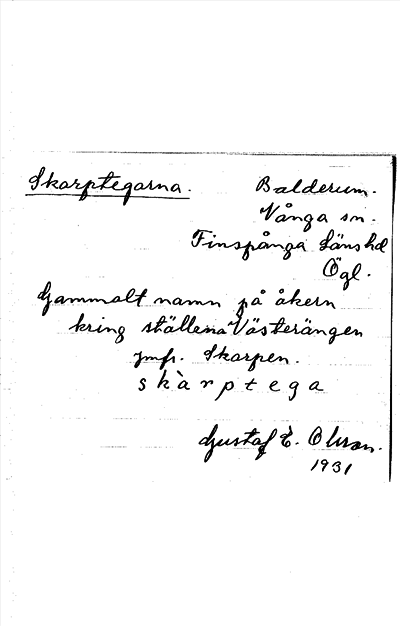 Skarptegarna.
Balderum.
Vånga sn.
Finspånga Länshd
Ögl.
Gammalt namn på åkern
kring ställena Västerängen
jmfr. Skarpen.
skàrptega
Gustaf E. Olsson.
1931